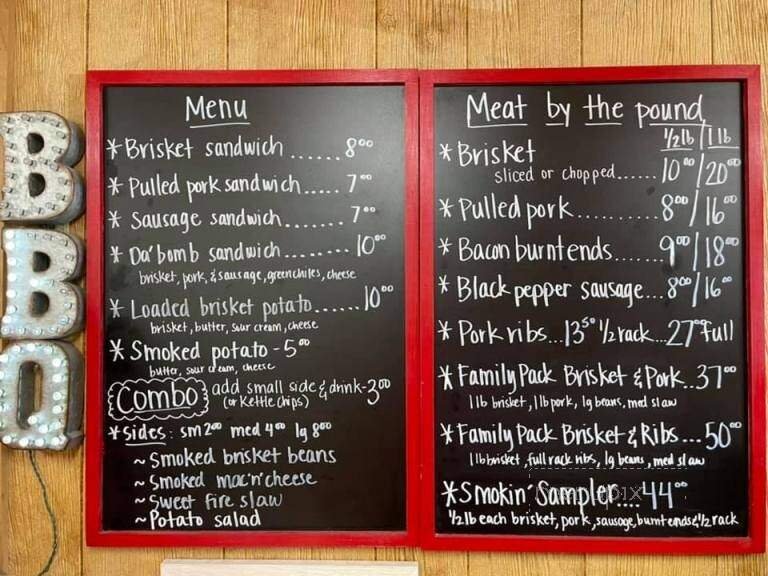 BBQ
Menu
* Brisket sandwich ...... 8⁰⁰
* Pulled pork sandwich ..... 7⁰⁰
* Sausage sandwich ....... 7⁰⁰
* Da'bomb sandwich ........ 10⁰⁰
brisket, pork, & sausage, green chiles, cheese
* Loaded brisket potato ...... 10⁰⁰
brisket, butter, sour cream, cheese
* Smoked potato - 5⁰⁰
butter, sour cream, cheese
Combo add small side & drink - 3⁰⁰
(or Kettle Chips)
* Sides: sm 2⁰⁰ med 4⁰⁰ lg 8⁰⁰
~ Smoked brisket beans
~ Smoked mac'n'cheese
~ Sweet fire slaw
~ Potato salad
Meat by the pound
1/2 lb / 1 lb
* Brisket
sliced or chopped ...... 10⁰⁰ / 20⁰⁰
* Pulled pork .......... 8⁰⁰ / 16⁰⁰
* Bacon burnt ends ....... 9⁰⁰ / 18⁰⁰
* Black pepper sausage ... 8⁰⁰ / 16⁰⁰
* Pork ribs ... 13⁵⁰ 1/2 rack ... 27⁰⁰ full
* Family Pack Brisket & Pork .. 37⁰⁰
1 lb brisket, 1 lb pork, lg beans, med slaw
* Family Pack Brisket & Ribs ... 50⁰⁰
1 lb brisket, full rack ribs, lg beans, med slaw
* Smokin' Sampler .... 44⁰⁰
1/2 lb each brisket, pork, sausage, burnt ends & 1/2 rack